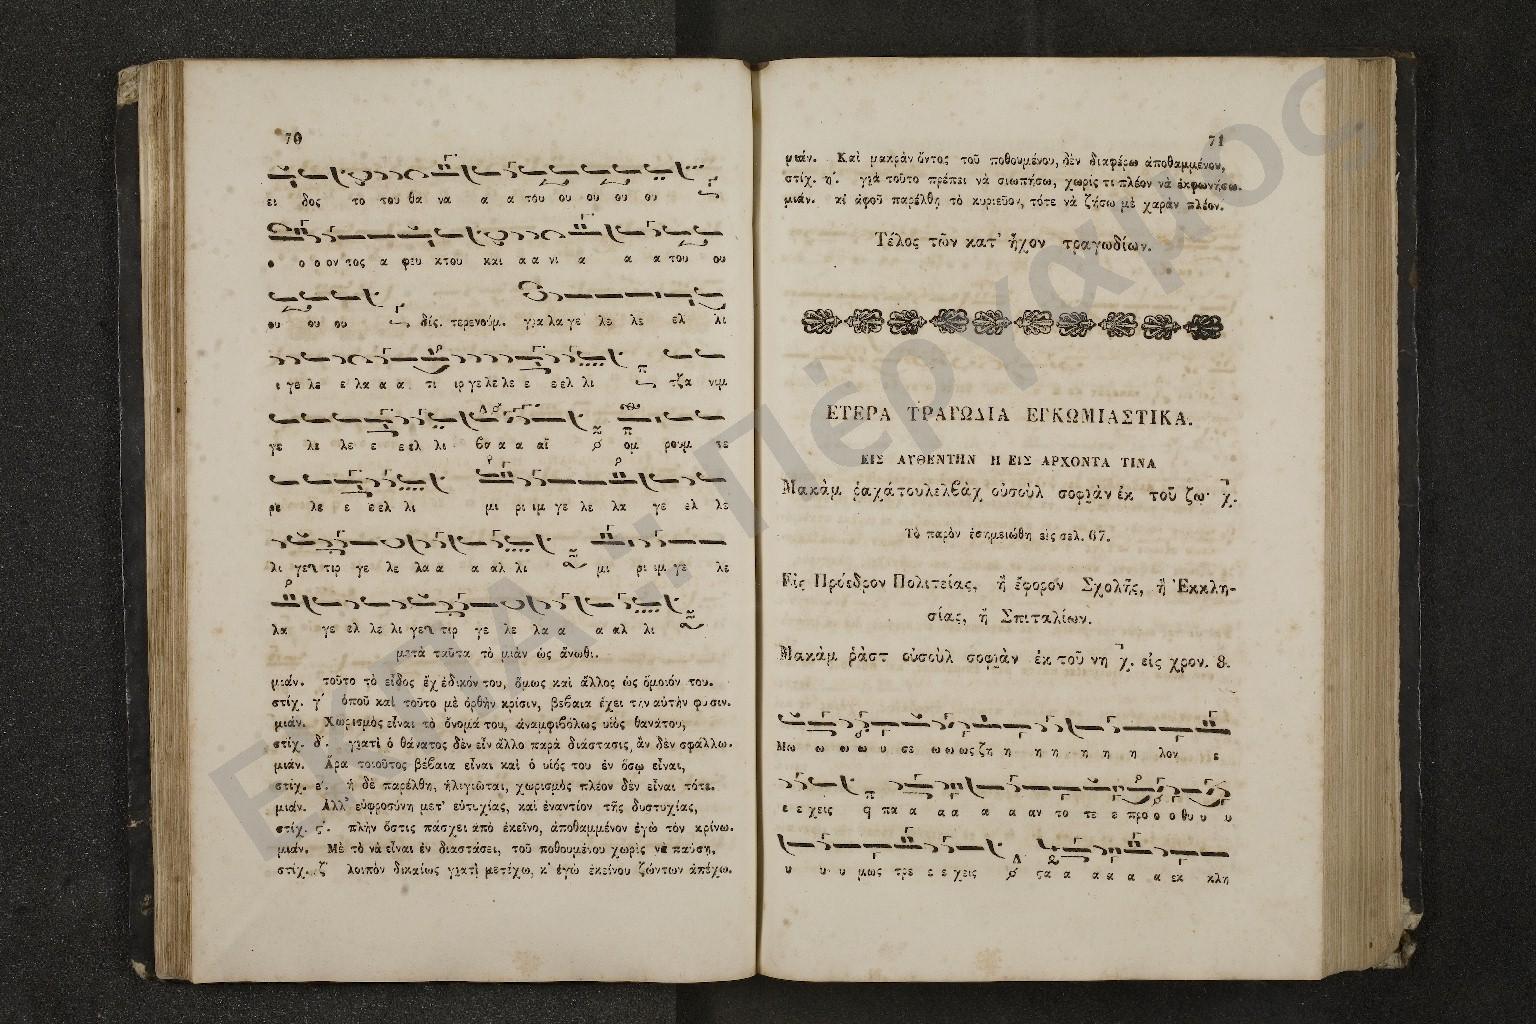 70
ει δος το του θα να α α του ου ου ου ου
ο ο ο ον τος α φευ κτου και α α νι α α α του ου
ου ου ου δίς. τερενούμ. για λα γε λε λε ελ λι
ι γε λε ε λα α α τι ιρ γε λε λε ε ε ελ λι τζα νιμ
γε λε λε ε ε ελ λι βα α α αϊ ομ ρουμ τε
ρε λε ε ε ελ λι μι ρι ιμ γε λε λα γε ελ λε
λι γε τιρ γε λε λα α α αλ λι μι ρι ιμ γε λε
λα γε ελ λε λι γε τιρ γε λε λα α α αλ λι
μετὰ ταῦτα τὸ μιὰν ὡς ἄνωθι.
μιάν. τοῦτο τὸ εἶδος ἔχ ἐδικόν του, ὅμως καὶ ἄλλος ὡς ὅμοιόν του.
στίχ. γ΄ ὁποῦ καὶ τοῦτο μὲ ὀρθὴν κρίσιν, βέβαια ἔχει την αὐτὴν φυσιν.
μιάν. Χωρισμὸς εἶναι τὸ ὄνομά του, ἀναμφιβόλως υἱὸς θανάτου,
στίχ. δ΄. γιατὶ ὁ θάνατος δὲν εἶν ἄλλο παρὰ διάστασις, ἂν δὲν σφάλλω.
μιάν. Ἄρα τοιοῦτος βέβαια εἶναι καὶ ὁ υἱός του ἐν ὅσῳ εἶναι,
στίχ. ε΄. ἡ δὲ παρέλθῃ, ἠλεγιῶται, χωρισμὸς πλέον δὲν εἶναι τότε.
μιάν. Ἀλλ᾽ εὐφροσύνη μετ᾽ εὐτυχίας, καὶ ἐναντίον τῆς δυστυχίας,
στίχ. ϛ΄. πλὴν ὅστις πάσχει ἀπὸ ἐκεῖνο, ἀποθαμμένον ἐγὼ τὸν κρίνω.
μιάν. Μὲ τὸ νὰ εἶναι ἐν διαστάσει, τοῦ ποθουμένου χωρὶς νὰ παύσῃ,
στίχ. ζ΄ λοιπὸν δικαίως γιατὶ μετέχω, κ᾽ ἐγὼ ἐκείνου ζώντων ἀπέχω.
71
μιάν. Καὶ μακρὰν ὄντος τοῦ ποθουμένου, δὲν διαφέρω ἀποθαμμένον,
στίχ. η΄. γιὰ τοῦτο πρέπει νὰ σιωπήσω, χωρίς τι πλέον νὰ ἐκφωνήσω.
μιάν. κι ἀφοῦ παρέλθῃ τὸ κυριεῦον, τότε νὰ ζήσω μὲ χαρὰν πλέον.
Τέλος τῶν κατ᾽ ἦχον τραγωδίων.
ΕΤΕΡΑ ΤΡΑΓΩΔΙΑ ΕΓΚΩΜΙΑΣΤΙΚΑ.
ΕΙΣ ΑΥΘΕΝΤΗΝ Η ΕΙΣ ΑΡΧΟΝΤΑ ΤΙΝΑ
Μακὰμ ῥαχάτουλελβὰχ οὐσοὺλ σοφιὰν ἐκ τοῦ ζω· χ.
Τὸ παρὸν ἐσημειώθη εἰς σελ. 67.
Εἰς Πρόεδρον Πολιτείας, ἢ ἔφορον Σχολῆς, ἢ Ἐκκλη-
σίας, ἢ Σπιταλίων.
Μακὰμ ῥὰστ οὐσοὺλ σοφιὰν ἐκ τοῦ νη χ. εἰς χρον. 8.
Μω ω ω ω υ σε ω ω ως ζη η η η η η η λον ε
ε ε χεις q πα α α α α α αν το τε ε προ ο ο θυ υ υ
υ υ υ μως τρε ε ε χεις τα α α α α α εκ κλη
ΕΚΠΑ: Πέργαμος